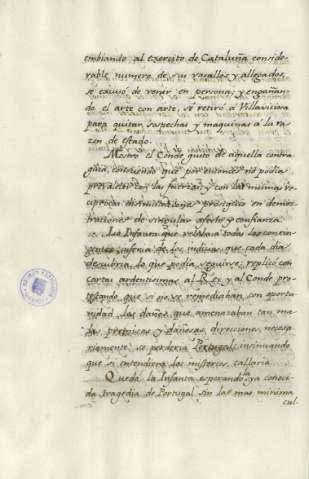 embiando al exercito de Cataluña conside-
rable numero de su vasallos y allegados,
se escusó de venir en persona; y engañan-
do el arte con arte, se retiró a Villaviciosa
para quitar sospechas y maquinas a la ra-
zon de estado.
Mostró el Conde gusto de aquella
que por entonces no podia
prevalecer con las fuerzas, y con las mismas
en demos-
traciones de singular afecto y confianza.
La Infanta que todas las contin-
gentes, inferia de los indicios que cada dia
descubria lo que podia seguirse, replicó con
cartas ardentisimas al Rey, y al Conde pro-
testando que si no se remediaban con oportu-
nidad los daños que amenazaban tan ma-
las y dañosas direcciones, necesa-
riamente se perderia Portugal, insinuando
que si entendiera los misterios, callaria.
Queda la Infanta esperando la ya conoci-
da tragedia de Portugal sin las mas minima
cul-